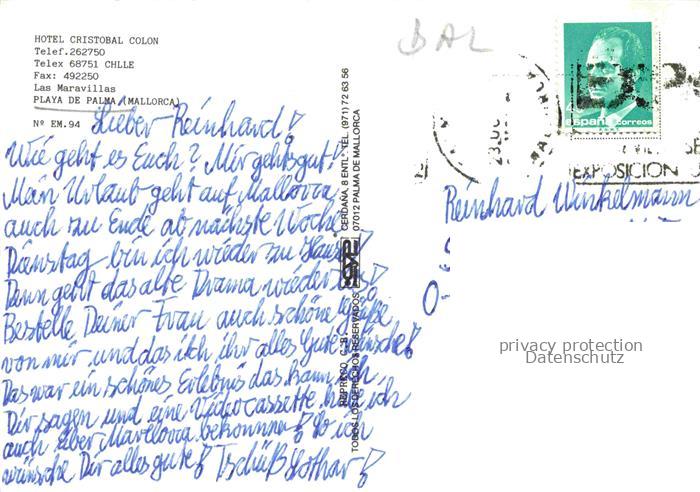 HOTEL CRISTOBAL COLON
Telef.262750
Telex 68751 CHLLE
Fax: 492250
Las Maravillas
PLAYA DE PALMA (MALLORCA)
Nº EM.94
Lieber Reinhard!
Wie geht es Euch? Mir gehts gut!
Mein Urlaub geht auf Mallorca
auch zu Ende ab nächste Woche
Dienstag bin ich wieder zu Hause!
Dann geht das alte Drama wieder los!
Bestelle Deiner Frau auch schöne Grüße
von mir und das ich ihr alles Gute wünsche!
Das war ein schönes Erlebnis das kann ich,
Dir sagen und eine Videocassette habe ich
auch über Mallorca bekommen! So ich
wünsche Dir alles gute! Tschüß Lothar!
REPRESO, C.B.
TODOS LOS DERECHOS RESERVADOS
CERDAÑA, 8 ENTL. TEL. (971) 72 63 56
07012 PALMA DE MALLORCA
BAL
España correos
EXPO
EXPOSICION
Reinhard Winkelmann
privacy protection
Datenschutz